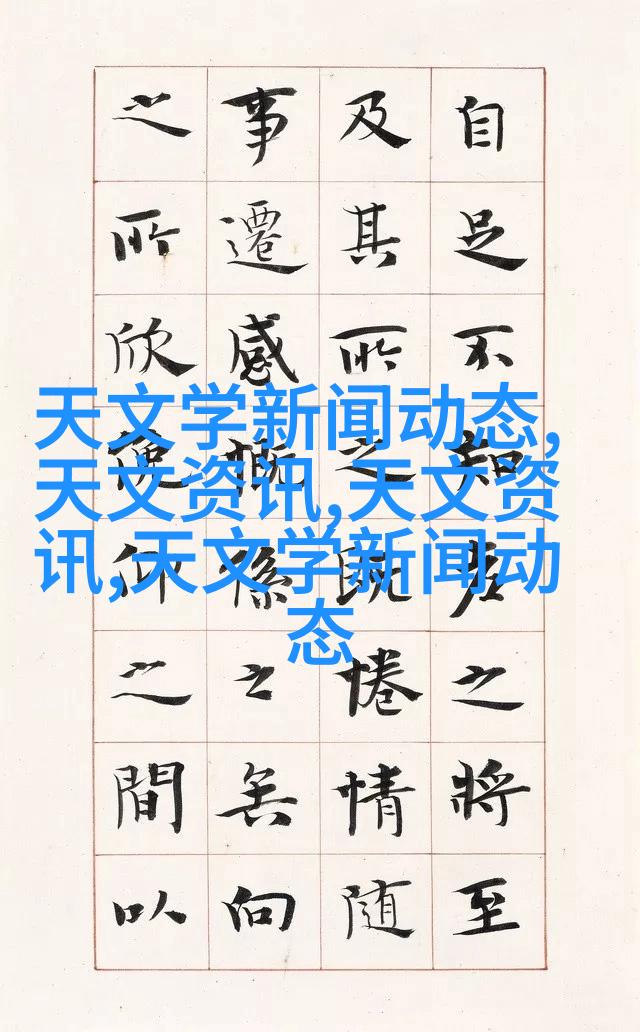 自足不知老之將至
及其所之既惓情随
事遷感慨係之矣向
之所欣俛仰之間以
天文学新闻动态,
天文资讯,天文资
讯,天文学新闻动
态